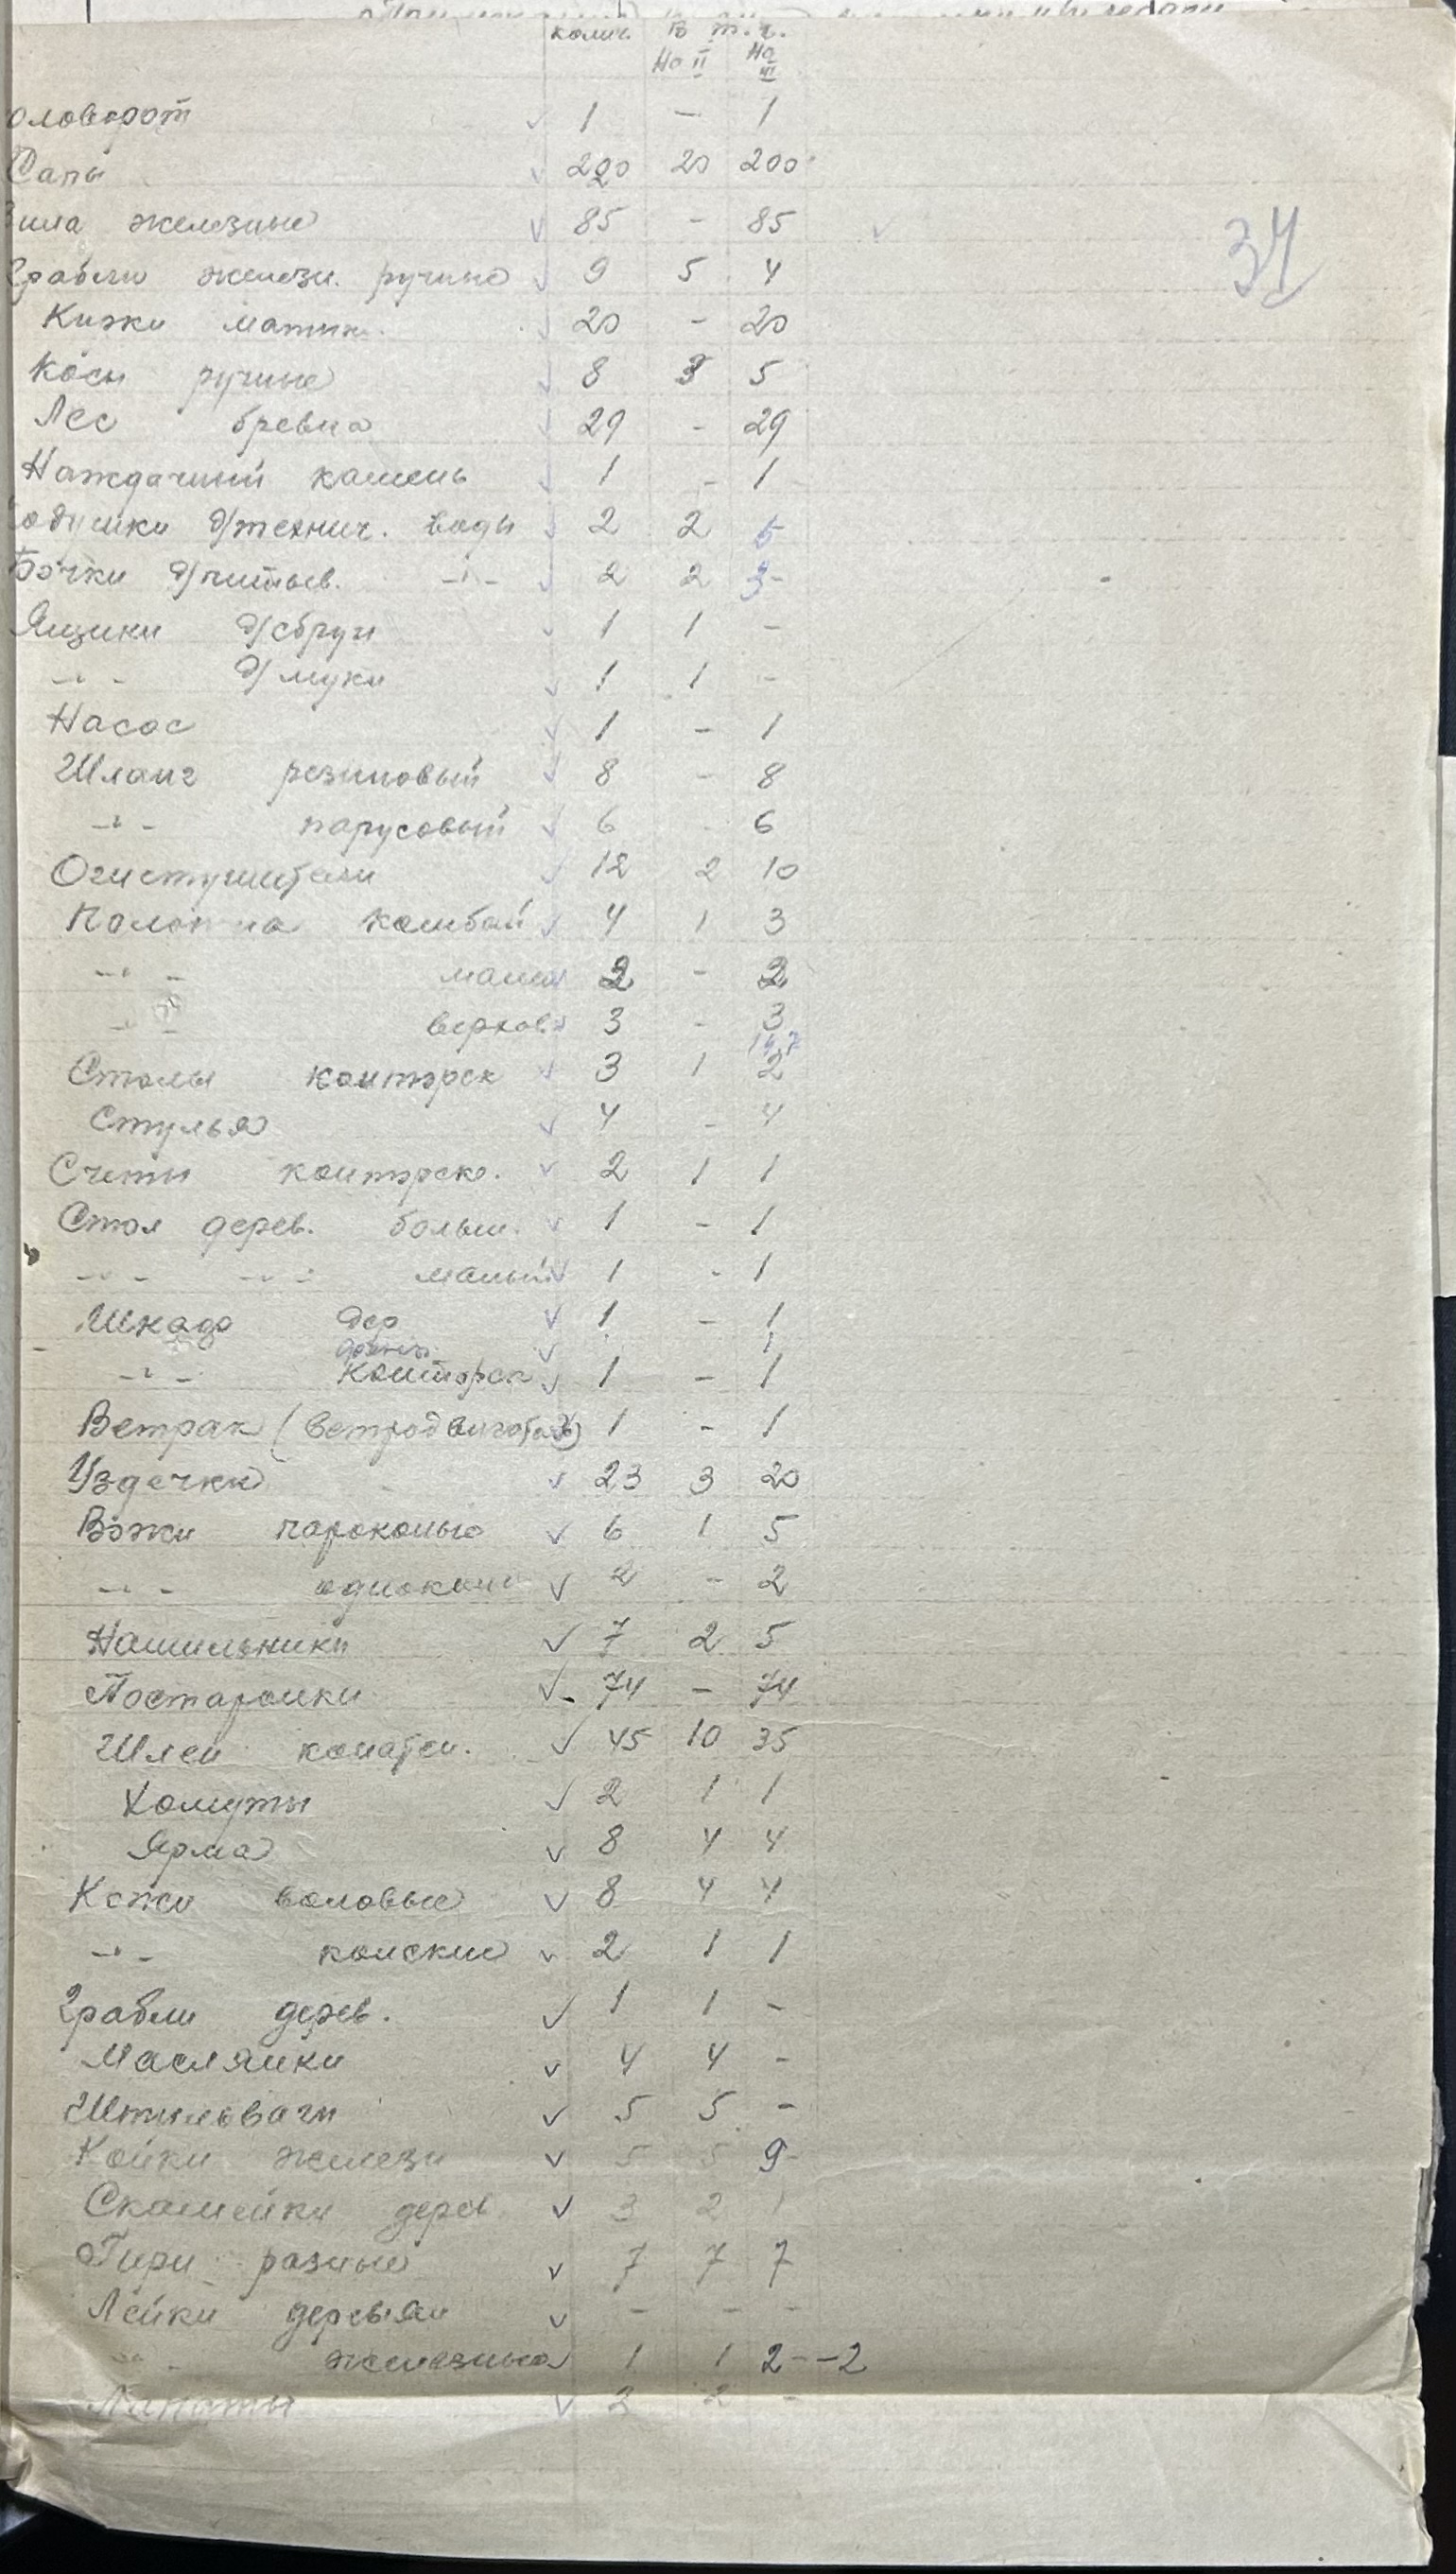 колич. В т.ч.
На II На III
оловорот 1 – 1
Сапы 220 20 200
Вила железные 85 – 85
34
Грабли железн. ручные 9 5 4
20 – 20
Косы ручные 8 3 5
Лес бревна 29 – 29
Наждачный камень 1 – 1
д/технич. воды 2 2 5
Бочки д/питьев. –"– 2 2 3-
Ящики д/сбруи 1 1 –
–"– д/муки 1 1 –
Насос 1 – 1
Шланг резиновый 8 – 8
–"– парусовый 6 - 6
Огнетушители 12 2 10
Полотна комбай 4 1 3
–"– 2 – 2
–"– верхов. 3 – 3
Столы конторск 3 1 2
Стулья 4 – 4
Счеты конторск. 2 1 1
Стол дерев. больш. 1 – 1
–"– –"– малый 1 - 1
Шкаф дер 1 – 1
1
–"– Конторск 1 – 1
Ветрак (ветродвигатель) 1 – 1
Уздечки 23 3 20
Вожжи пароконые 6 1 5
–"– одноконн 2 – 2
Нашильники 7 2 5
Постаромки 74 – 74
Шлеи конатн. 45 10 35
Хомуты 2 1 1
Ярма 8 4 4
Кожи воловые 8 4 4
–"– конские 2 1 1
Грабли дерев. 1 1 –
Маслянки 4 4 –
Штильваги 5 5 –
Койки железн 5 5 9
Скамейки дерев 3 2 1
Гири разные 7 7 7
Лейки деревян – – –
–"– железные 1 1 2--2
Лопаты 2 2 –